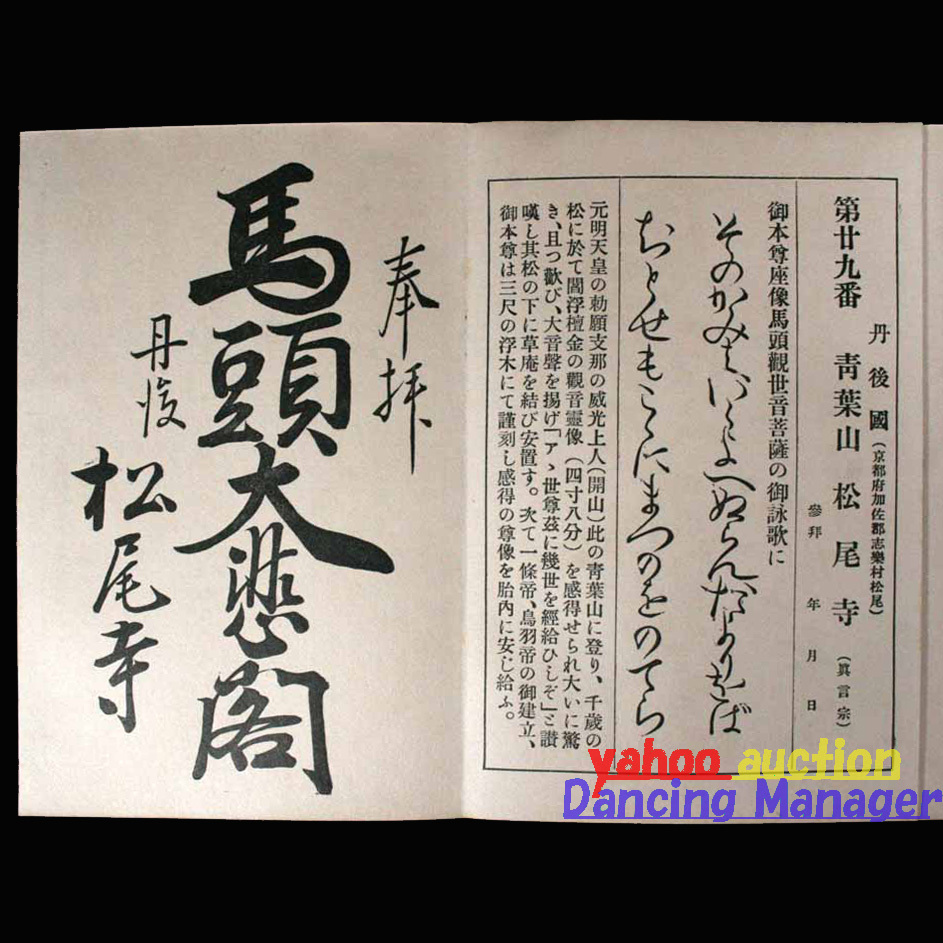 丹後國(京都府加佐郡志樂村松尾)
第廿九番 青葉山 松尾寺(眞言宗)
參拜 年 月 日
御本尊座像馬頭觀世音菩薩の御詠歌に
そのかみはいくよへぬらんたよりをば
ちとせもこゝにまつのをのてら
元明天皇の勅願支那の威光上人(開山)此の青葉山に登り、千歳の
松に於て閻浮檀金の觀音靈像(四寸八分)を感得せられ大いに驚
き、且つ歡び、大音聲を揚げ「アヽ世尊茲に幾世を經給ひしぞ」と讃
嘆し其松の下に草庵を結び安置す。次て一條帝、鳥羽帝の御建立、
御本尊は三尺の浮木にて謹刻し感得の尊像を胎內に安じ給ふ。
奉拜
馬頭大悲閣
丹後
松尾寺
yahoo auction
Dancing Manager